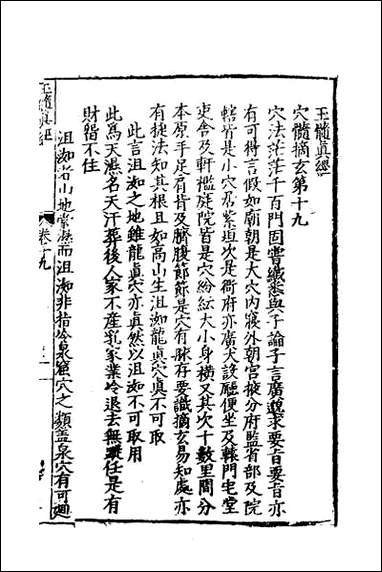 玉髓真經
穴髓摘玄第十九
穴法茫茫千百門固嘗纎悉與子論子言廣邈求要旨要旨亦
有可得言假如廟朝是大穴內寢外朝宮掖分府監省部及院
轄皆是小穴為紫垣次是衙府亦廣大設廳便坐及轅門宅堂
吏舍及軒檻庭院皆是穴紛紜大小身橫又其次十數里間分
本原手足有背及臍腹節節是穴有脉存要識摘玄易知處亦
有捷法知其根且如高山生沮洳龍真穴真不可取
此言沮洳之地雖龍真穴亦真然以沮洳不可取用
此為天濕名天汗葬後人家不產乳家業冷退去無踪任是有
財留不住
沮洳者山地常濕而沮洳非指冷泉竇穴之類蓋泉穴有可廻
玉髓真經
卷十九